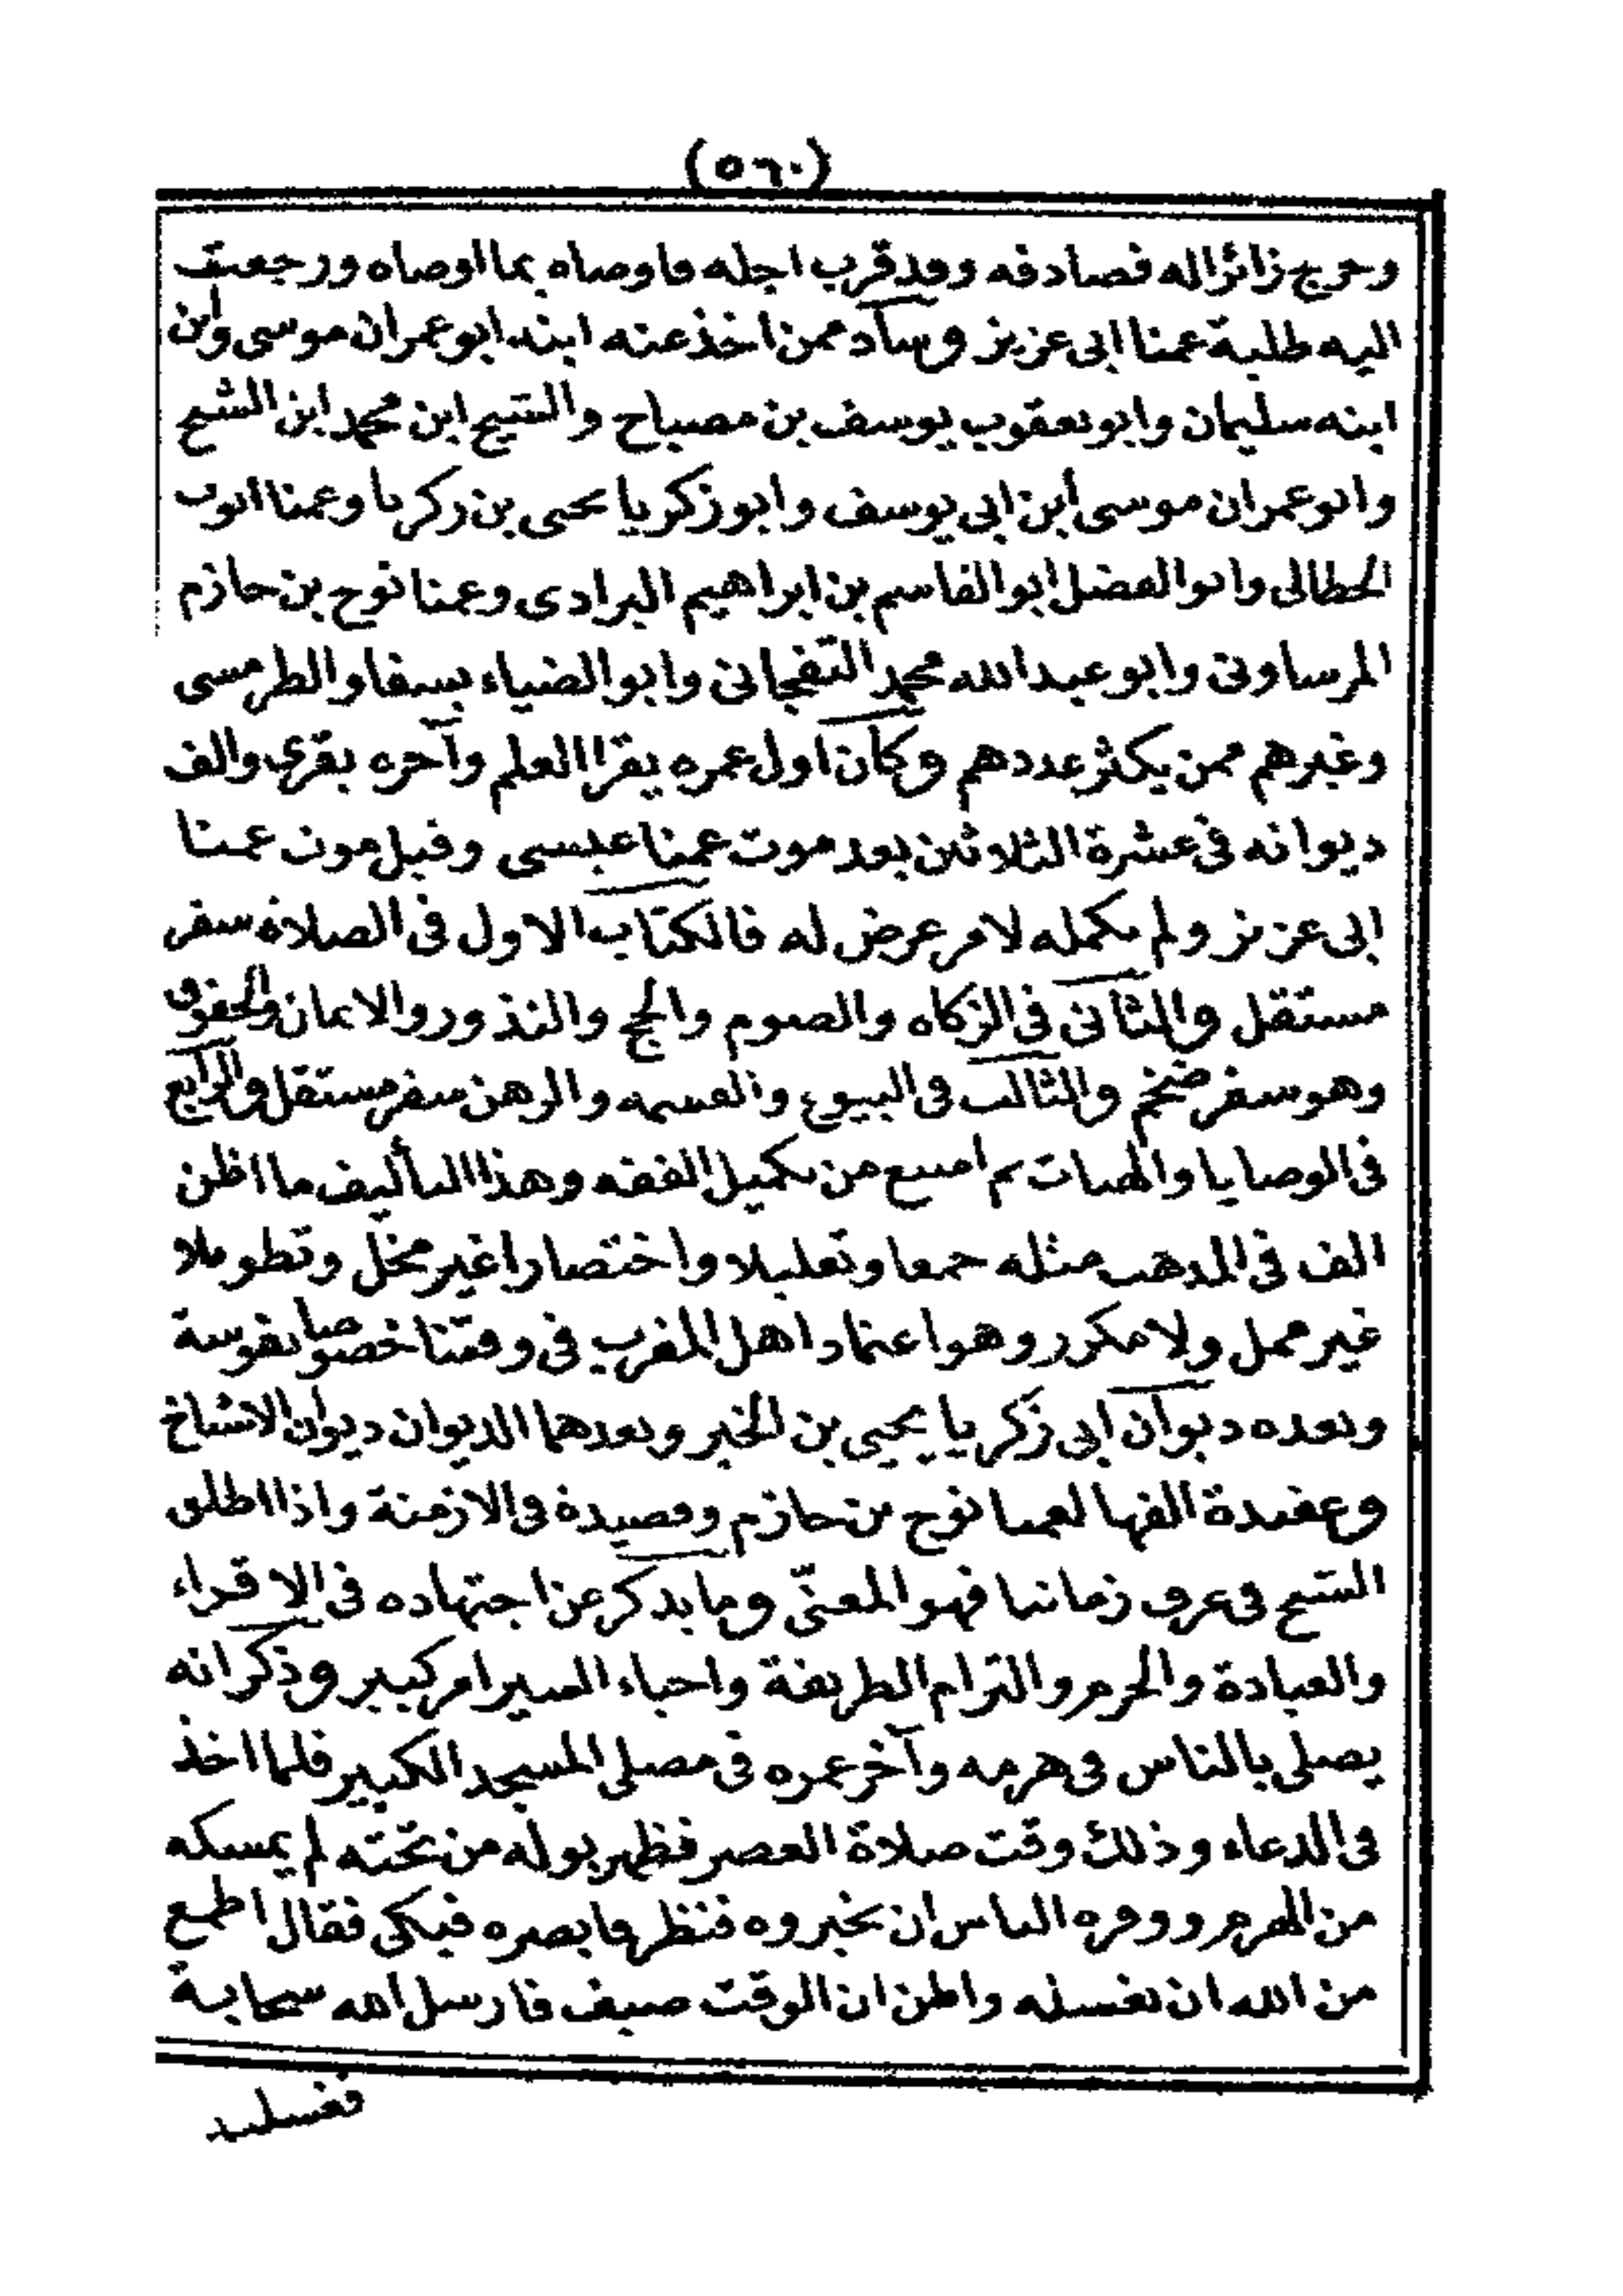 (٥٦٠)
وخرج زائرا له فصادفه وقد قرب اجله فاوصاه بما اوصاه ورجعت
اليه طلبة عمنا ابى عزيز وساد ممن اخذ عنه ابنه ابو عمران موسى وابن
ابنه سليمان وابو يعقوب يوسف بن مصباح والشيخ ابن محمد ابن الشيخ
وابو عمران موسى أبن ابى يوسف وابو زكريا يحيى بن زكريا وعمنا ايوب
الحطالى وابو الفضل ابو القاسم بن ابراهيم البرادى وعمنا نوح بن حازم
المرساونى وابو عبد الله محمد التفجانى وابو الضياء بسفاو الطرمسى
وغيرهم ممن يكثر عددهم وكان اول عمره يقرا العلم وآخره يقرى والف
ديوانه فى عشرة الثلاثين بعد موت عمنا عيسى وقبل موت عمنا
ابى عزيز ولم يكمله لامر عرض له فالكتاب الاول فى الصلاة سفر
مستقل والثانى فى الزكاه والصوم والحج والنذور والايمان والحقوق
وهو سفر ضخم والثالث فى البيوع والقسمه والرهن سفر مستقل والرابع
فى الوصايا والهبات ثم امتنع من تكميل الفقه وهذا التأليف ما اظن
الف فى المذهب مثله جمعا وتعليلا واختصارا غير مخل وتطويلا
غير ممل ولا مكرر وهو اعتماد اهل المغرب فى وقتنا خصوصا نفوسة
وبعده ديوان ابى زكريا يحيى بن الخير وبعدهما الديوان ديوان الاشياخ
وعقيدة الفها لعمنا نوح بن حازم وقصيدة فى الازمنة واذا اطلق
الشيخ فى عرف زماننا فهو المعنّى وما يذكر عن اجتهاده فى الاقراء
والعبادة والحزم والتزام الطريقة واحياء السير امر كبير وذكر انه
يصلى بالناس فى هرمه وآخر عمره فى مصلى المسجد الكبير فلما اخذ
فى الدعاء وذلك وقت صلاة العصر فظهر بوله من تحته لم يمسكه
من الهرم ووقره الناس ان يخبروه فنظرها بصره فبكى فقال اطمع
من الله ان تغسله واظن ان الوقت صيف فارسل الله سحابة
فغسلته